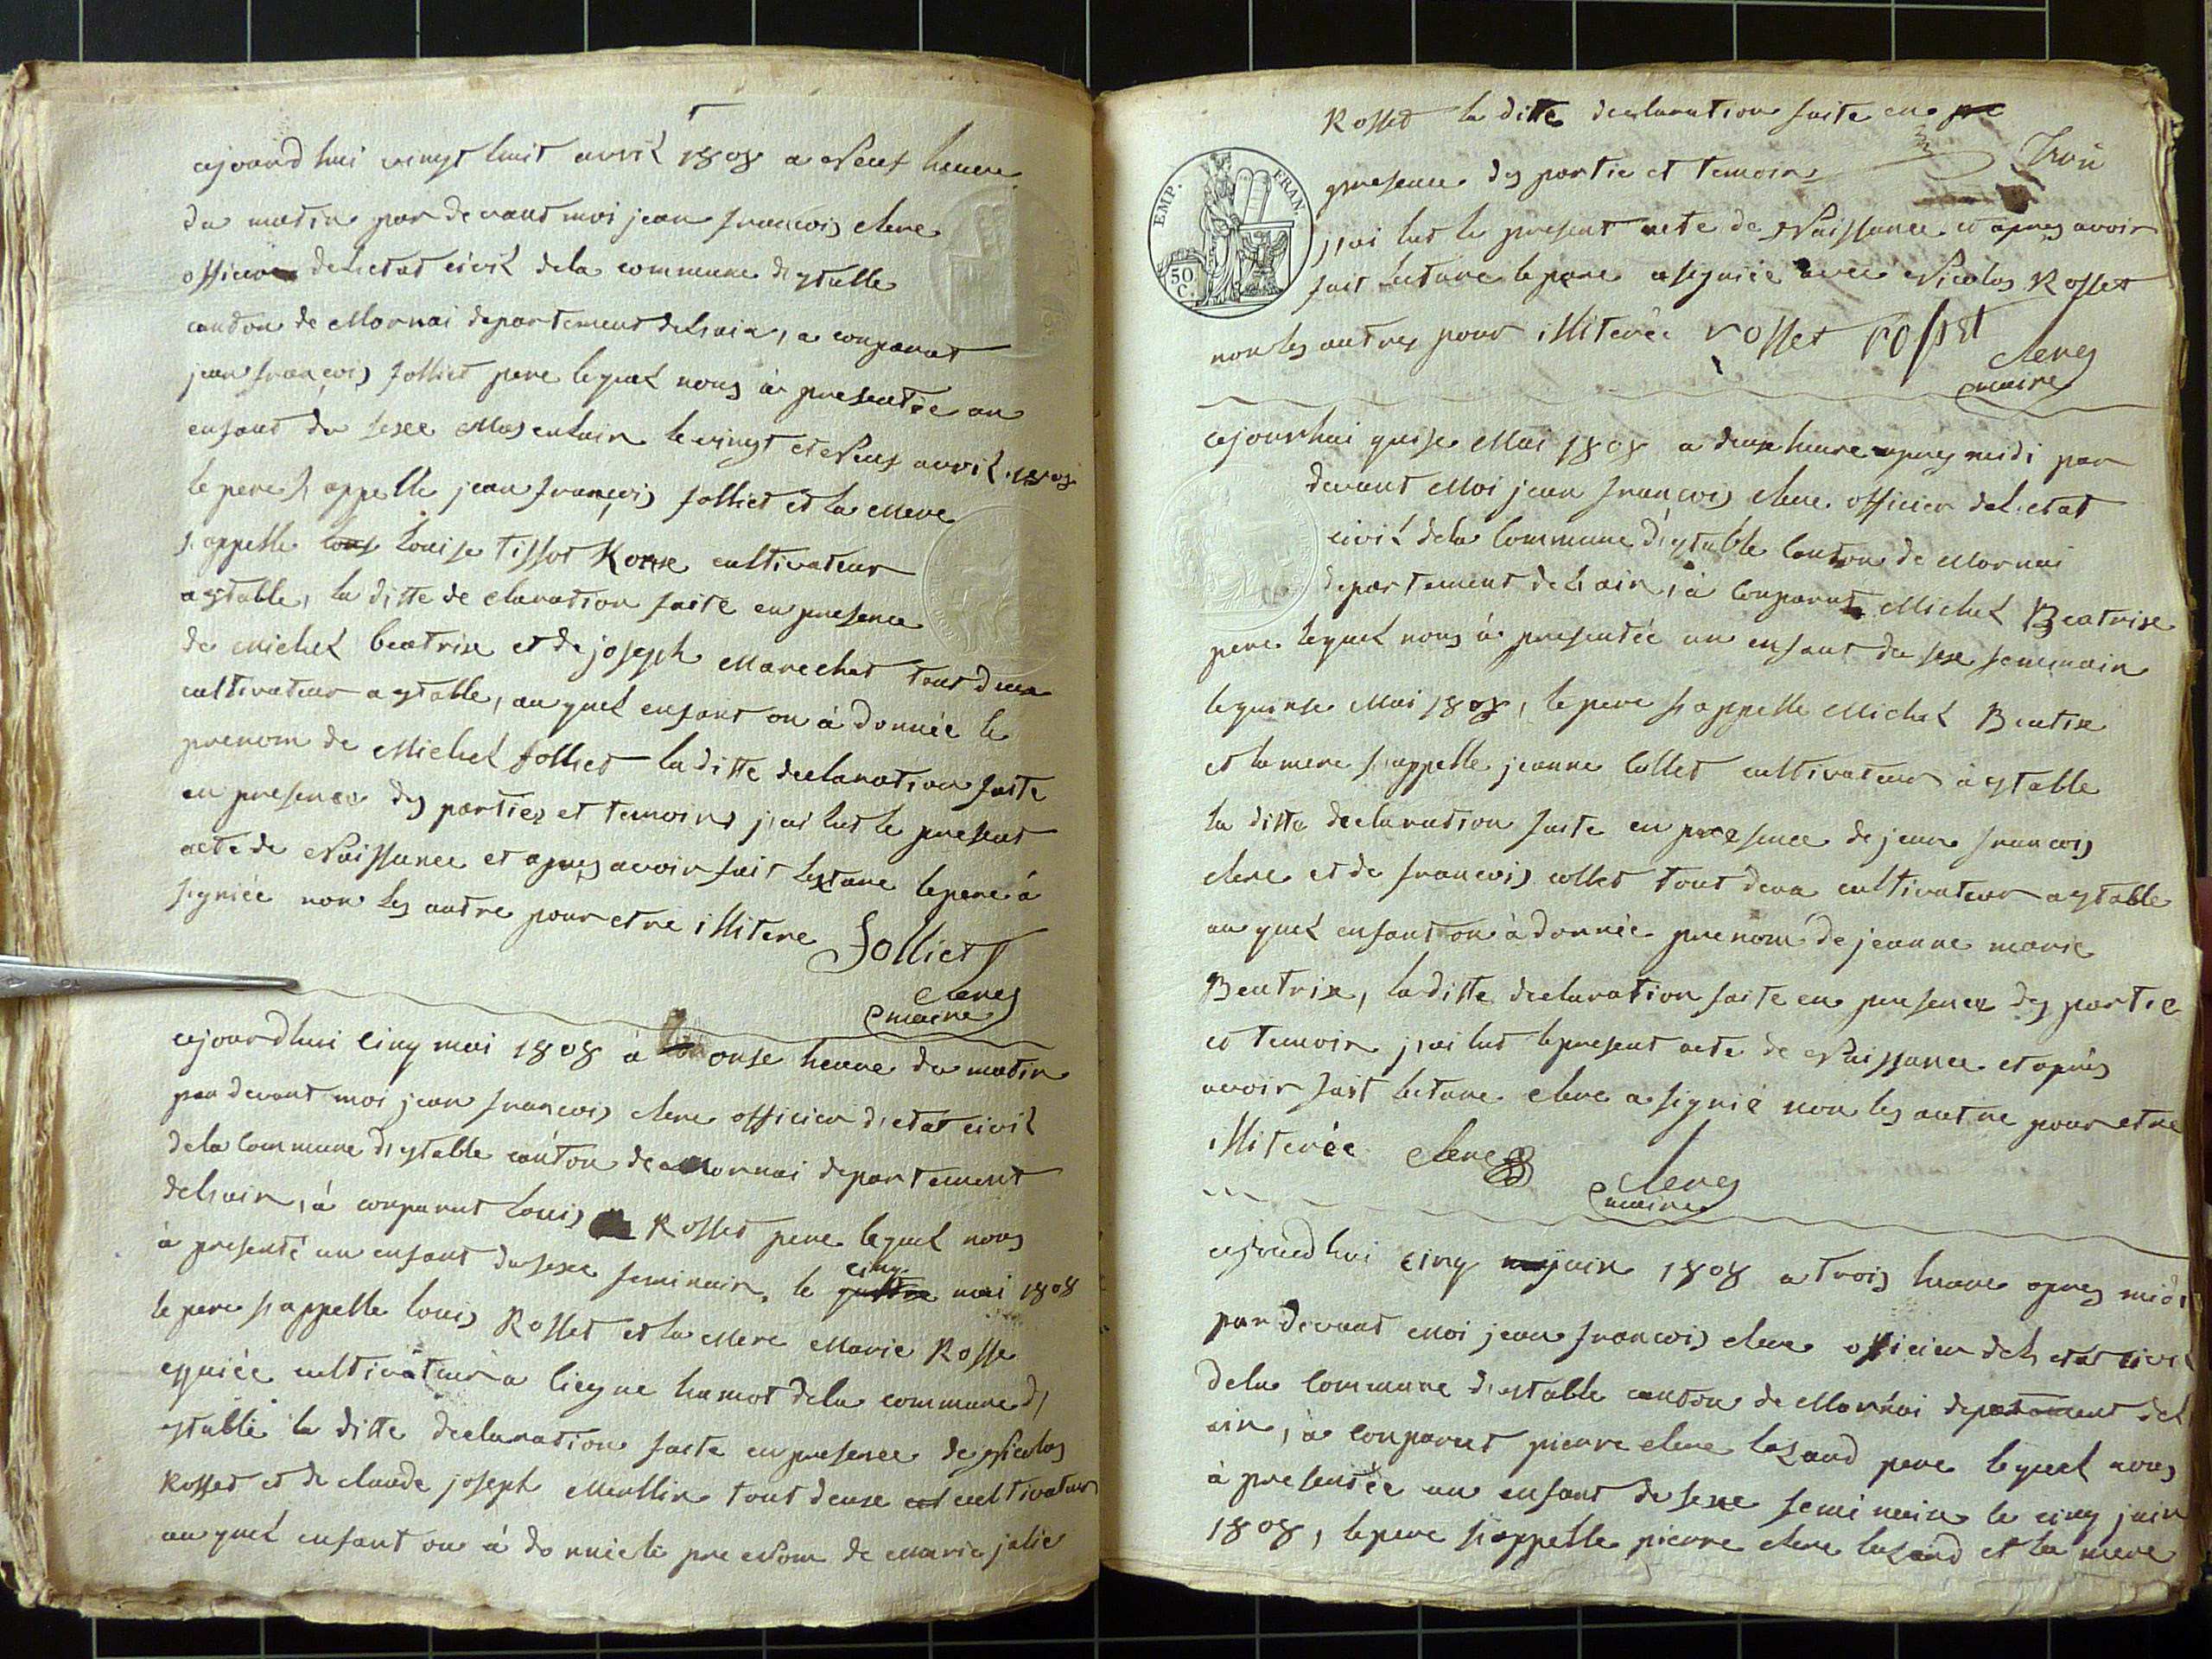 ajourd hui vingt huit avril 1808 a Neuf heure
du matin par devant moi jean francois clerc
officier deletat civil dela commune dystable
canton de Mornai departement delain, a comparut
jean françois Jolliet pere lequel nous à presentée un
enfant du sexe Masculain le vingt et Neuf avril 1808
le pere s,appelle jean françois Jolliet et la Mere
s,appelle Louise tissot cultivateur
aystable, la ditte declaration faite en presence
de Michel beatrix et de joseph Marechet tout deux
cultivateur a ystable, au quel enfant on à donnée le
prenom de Michel Jolliet la ditte declaration faite
en presence des parties et temoins j,ai lut le present
acte de Naissance et apres avoir fait lecture le pere à
signiée non les autre pour etre illitere Jolliet
clerc
maire
ajourdhui cinq mai 1808 à onse heure du matin
par devant moi jean francois clerc officier d,etat civil
dela commune d,ystable canton de Mornai departement
delain, à comparut Louis Rosset pere lequel nous
à presenté un enfant du sexe feminain, le cinq mai 1808
le pere s,appelle louis Rosset et la Mere Marie Rosse
cultivateur a ciegne hamot dela commune d,
ystable la ditte declaration faite en presence de Nicolas
Rosset et de claude joseph tout deuxe cultivateur
au quel enfant on à donniele preNom de Marie julie
Rosset la ditte declaration faite en
presence des partie et temoins
EMP. FRAN.
50 C.
j,ai lut le present acte de Naissance et apres avoir
fait lecture le pere a signiée avec Nicolas Rosset
non les autres pour illiterée rosset rosset
clerc
maire
ajourhui quise Mai 1808 a deux heure apres midi par
devant Moi jean françois clerc officier del,etat
civil dela Commune d,ystable Canton de Mornai
departement delain, à Comparut Michel Beatrise
pere lequel nous à presentée un enfant du sexe feminain
le quinse Mai 1808, le pere s,appelle Michel Beatix
et la mere s,appelle jeanne Collet cultivateur à ystable
la ditte declaration faite en presence de jean francois
clerc et de francois collet tout deux cultivateur a ystable
au quel enfant on à donnée prenom de jeanne marie
Beatrix, la ditte declaration faite en presence des partie
et temoin j,ai lut le present acte de Naissance et aprés
avoir fait lecture clerc a signié non les autre pour etre
illiterée clerc
clerc
maire
ajourd hui cinq juin 1808 a trois heure apres midi
par devant Moi jean francois clerc officier del etat civil
dela Commune d,ystable canton de Mornai departement del
ain, à Comparut pierre clerc lazard pere lequel nous
à presentée un enfant de sexe feminain le cinq juin
1808, le pere s,appelle pierre clerc lazard et la mere